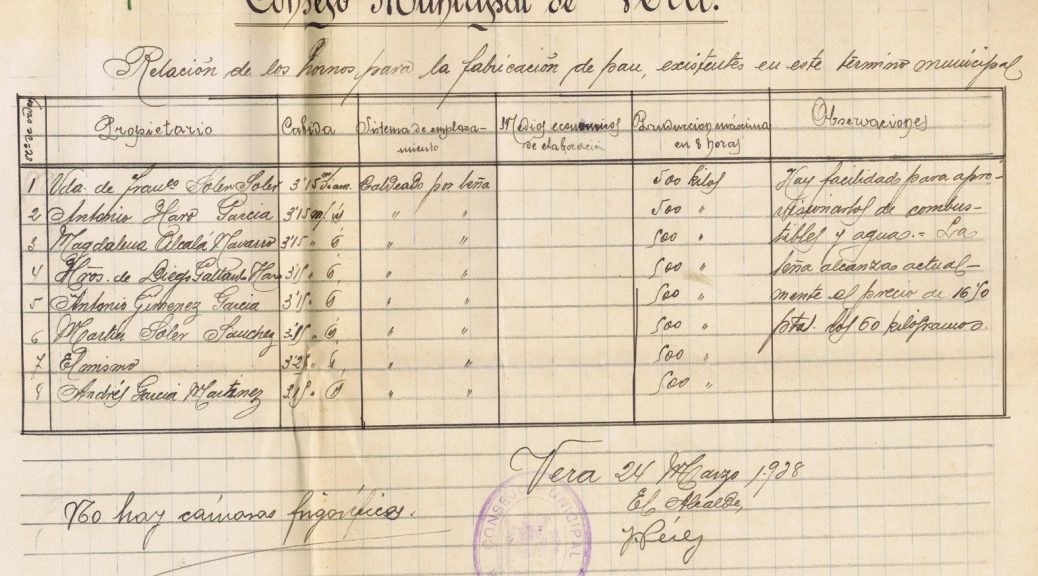 Consejo Municipal de Vera.
Relación de los hornos para la fabricación de pan, existentes en este término municipal
Nº de orden Propietario Cabida Sistema de emplaza- Medios económicos Producción máxima Observaciones
miento de elaboración en 8 horas
1 Vda. de Franco Soler Soler 3'15 diam. Caldeado por leña 500 kilos Hay facilidad para apro-
2 Antonio Haro Garcia 3'15 " " 500 " visionarlos de combus-
3 Magdalena Alcalá Navarro 3'15 " " " 500 " tibles y aguas.= La
4 Hros. de Diego Gallardo Haro 3'15 " " " 500 " leña alcanza actual-
5 Antonio Gimenez Garcia 3'15 " " " 500 " mente el precio de 16'50
6 Martin Soler Sanchez 3'15 " " " 500 " ptas. los 50 kilogramos.
7 El mismo 3'25 " " " 500 "
8 Andrés Garcia Martinez 3'15 " " " 500 "
Vera 24 Marzo 1.938
No hay cámaras frigoríficas.
El Alcalde,
CONSEJO MUNICIPAL